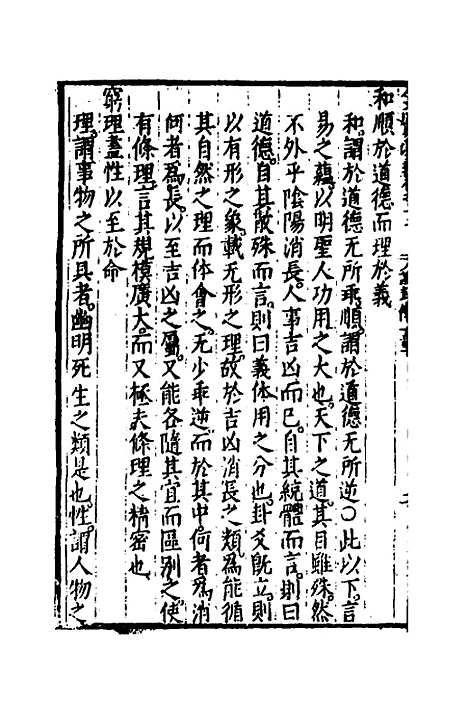 和順於道德而理於義
和。謂於道德无所乖。順。謂於道德无所逆〇此以下。言
易之蘊。以明聖人功用之大也。天下之道。其目雖殊。然
不外乎陰陽消長。人事吉凶而已。自其統體而言。則曰
道德。自其散殊而言。則曰義。体用之分也。卦爻旣立。則
以有形之象。載无形之理。故於吉凶消長之類。爲能循
其自然之理而体會之。无少乖逆。而於其中。何者爲消
何者爲長。以至吉凶之屬。又能各隨其宜而區别之。使
有條理。言其規模廣大。而又極夫條理之精密也
窮理盡性以至於命
理。謂事物之所具者。幽明死生之類是也。性。謂人物之